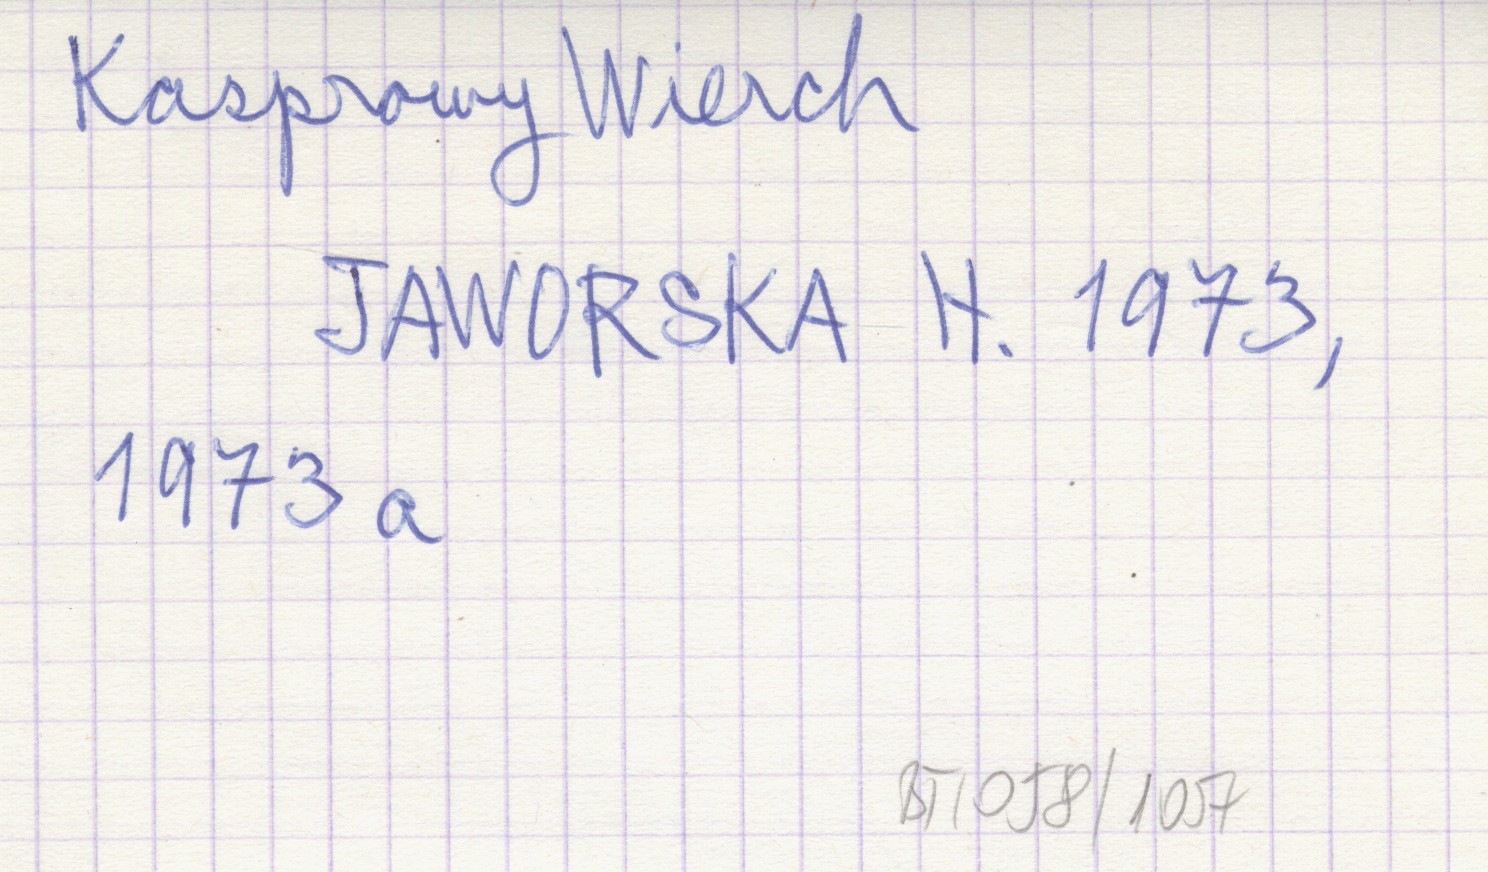 Kasprowy Wierch
JAWORSKA H. 1973,
1973 a
BT/058/1057